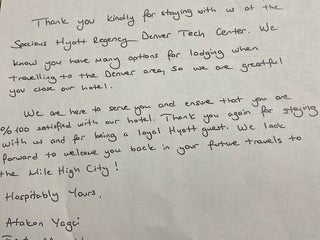 Thank you kindly for staying with us at the
Specious Hyatt Regency Denver Tech Center. We
know you have many options for lodging when
travelling to the Denver area, so we are greatful
you chose our hotel.
We are here to serve you and ensure that you are
%100 satisfied with our hotel. Thank you again for staying
with us and for being a loyal Hyatt guest. We look
forward to welcome you back in your future travels to
the Mile High City!
Hospitably Yours,
Atakan Yagci